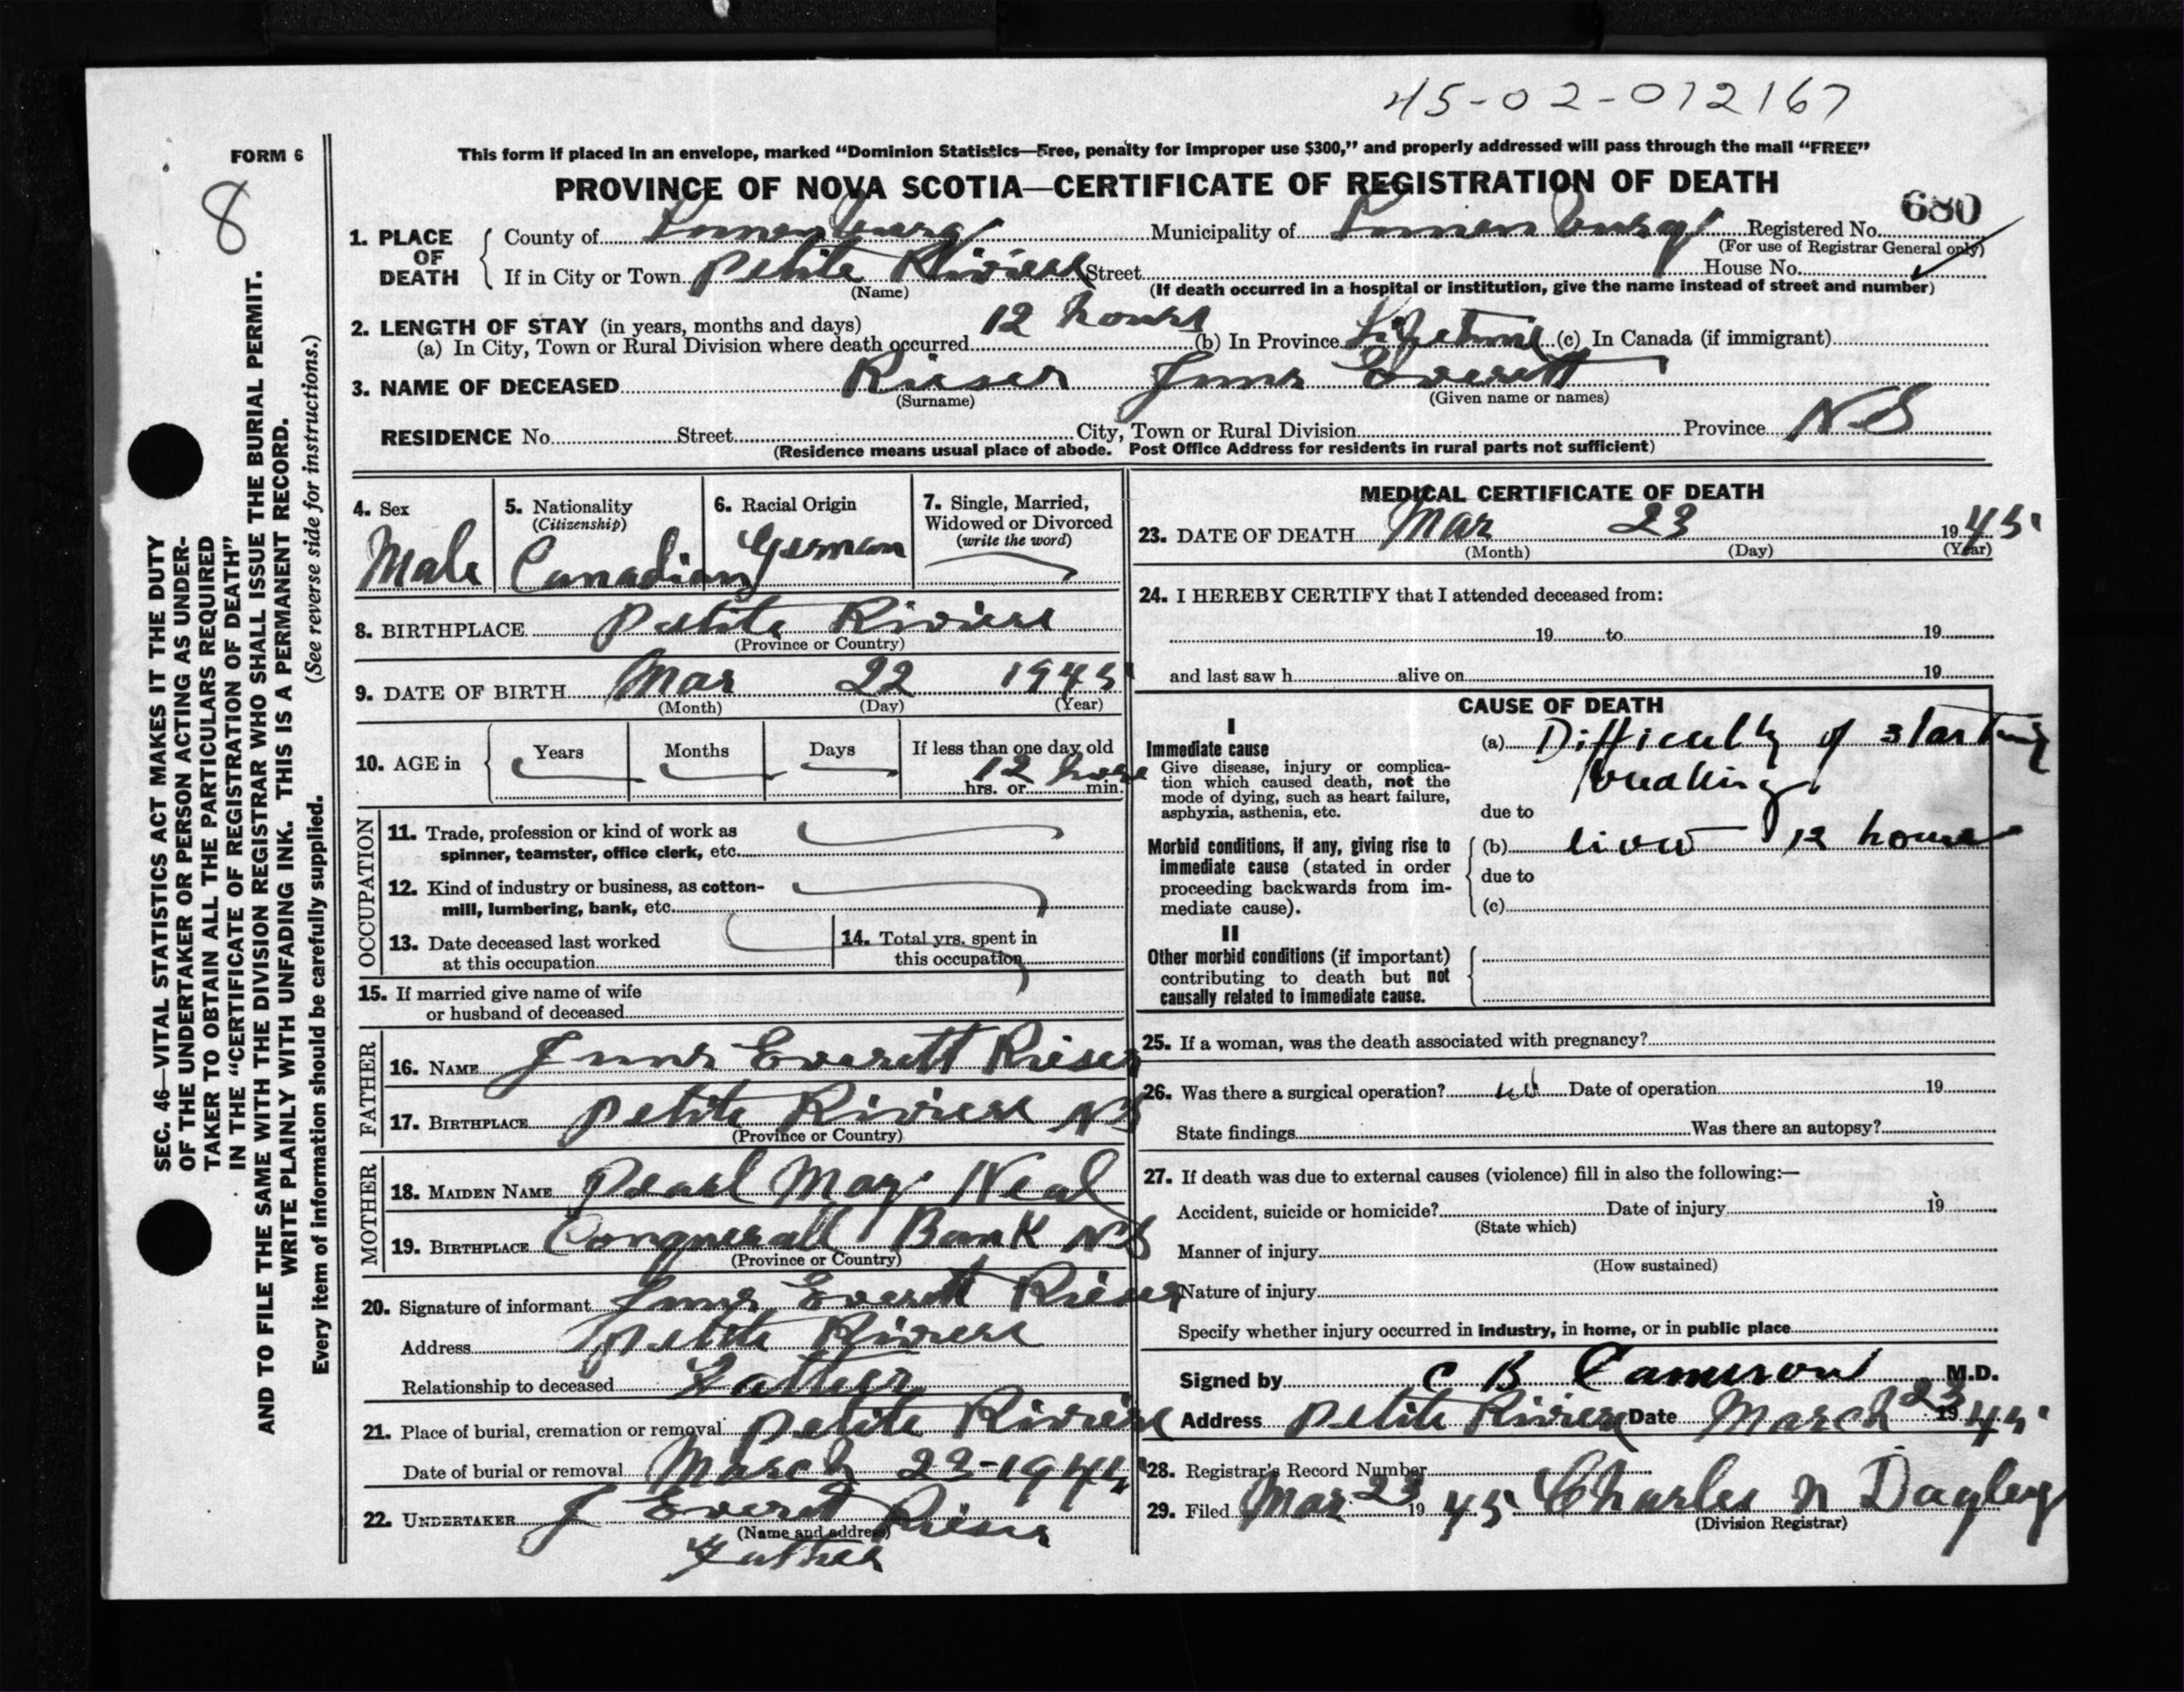 45-02-012167
FORM 6
8
This form if placed in an envelope, marked “Dominion Statistics—Free, penalty for improper use $300,” and properly addressed will pass through the mail “FREE”
PROVINCE OF NOVA SCOTIA—CERTIFICATE OF REGISTRATION OF DEATH
680
1. PLACE OF DEATH
County of Lunenburg Municipality of Lunenburg Registered No.
(For use of Registrar General only)
If in City or Town Petite Riviere Street House No.
(Name) (If death occurred in a hospital or institution, give the name instead of street and number)
2. LENGTH OF STAY (in years, months and days)
(a) In City, Town or Rural Division where death occurred 12 hours (b) In Province Lifetime (c) In Canada (if immigrant)
3. NAME OF DECEASED Rieser Everett
(Surname) (Given name or names)
RESIDENCE No. Street City, Town or Rural Division Province N.S
(Residence means usual place of abode. Post Office Address for residents in rural parts not sufficient)
4. Sex Male
5. Nationality (Citizenship) Canadian
6. Racial Origin German
7. Single, Married, Widowed or Divorced (write the word)
8. BIRTHPLACE Petite Riviere
(Province or Country)
9. DATE OF BIRTH Mar 22 1945
(Month) (Day) (Year)
10. AGE in Years Months Days If less than one day old
12 hrs. or min.
OCCUPATION
11. Trade, profession or kind of work as
spinner, teamster, office clerk, etc.
12. Kind of industry or business, as cotton-
mill, lumbering, bank, etc.
13. Date deceased last worked
at this occupation
14. Total yrs. spent in
this occupation
15. If married give name of wife
or husband of deceased
FATHER
16. NAME Everett Rieser
17. BIRTHPLACE Petite Riviere NS
(Province or Country)
MOTHER
18. MAIDEN NAME Pearl May Neal
19. BIRTHPLACE Conquerall Bank NS
(Province or Country)
20. Signature of informant Everett Rieser
Address Petite Riviere
Relationship to deceased Father
21. Place of burial, cremation or removal Petite Riviere
Date of burial or removal March 23-1945
22. UNDERTAKER J Everett Rieser
(Name and address)
Father
MEDICAL CERTIFICATE OF DEATH
23. DATE OF DEATH Mar 23 1945
(Month) (Day) (Year)
24. I HEREBY CERTIFY that I attended deceased from:
19 to 19
and last saw h alive on 19
CAUSE OF DEATH
I
Immediate cause
Give disease, injury or complica-
tion which caused death, not the
mode of dying, such as heart failure,
asphyxia, asthenia, etc.
(a) Difficulty of starting
breathing
due to
Morbid conditions, if any, giving rise to
immediate cause (stated in order
proceeding backwards from im-
mediate cause).
(b) lived 12 hours
due to
(c)
II
Other morbid conditions (if important)
contributing to death but not
causally related to immediate cause.
25. If a woman, was the death associated with pregnancy?
26. Was there a surgical operation? no Date of operation 19
State findings Was there an autopsy?
27. If death was due to external causes (violence) fill in also the following:—
Accident, suicide or homicide? Date of injury 19
(State which)
Manner of injury
(How sustained)
Nature of injury
Specify whether injury occurred in industry, in home, or in public place
Signed by C B Cameron M.D.
Address Petite Riviere Date March 23 1945
28. Registrar's Record Number
29. Filed Mar 23 1945 Charles N Dagley
(Division Registrar)
SEC. 46—VITAL STATISTICS ACT MAKES IT THE DUTY
OF THE UNDERTAKER OR PERSON ACTING AS UNDER-
TAKER TO OBTAIN ALL THE PARTICULARS REQUIRED
IN THE “CERTIFICATE OF REGISTRATION OF DEATH”
AND TO FILE THE SAME WITH THE DIVISION REGISTRAR WHO SHALL ISSUE THE BURIAL PERMIT.
WRITE PLAINLY WITH UNFADING INK. THIS IS A PERMANENT RECORD.
Every item of information should be carefully supplied. (See reverse side for instructions.)